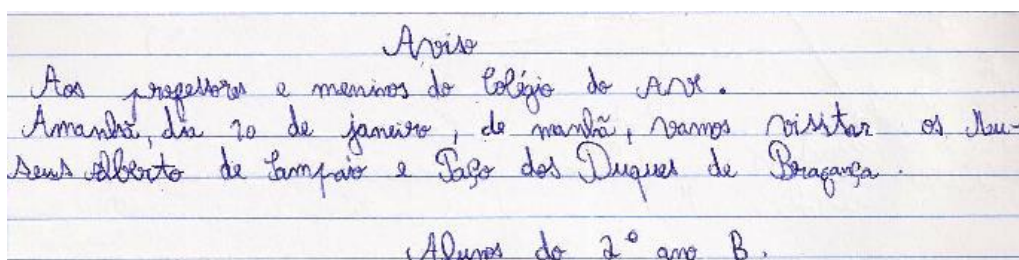 Aviso
Aos professores e meninos do Colégio do AVE.
Amanhã, dia 20 de janeiro, de manhã, vamos visitar os Mu-
seus Alberto de Sampaio e Paço dos Duques de Bragança.
Alunos do 2º ano B.